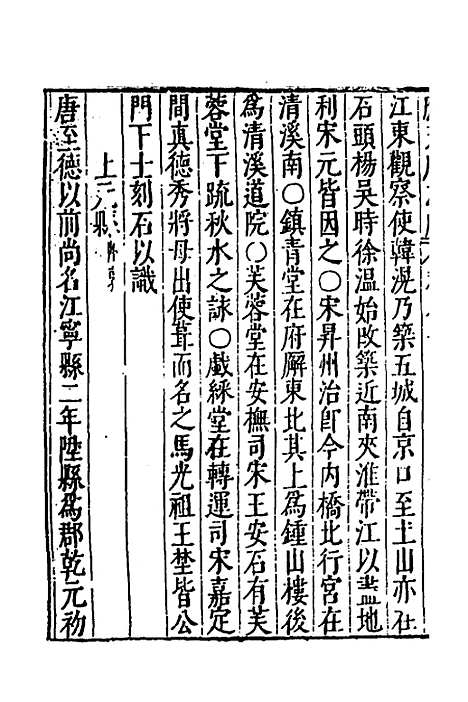 江東觀察使韓滉乃築五城自京口至土山亦在
石頭楊吳時徐溫始改築近南夾淮帶江以盡地
利宋元皆因之〇宋昇州治即今內橋北行宮在
清溪南〇鎮青堂在府廨東北其上為鍾山樓後
為清溪道院〇芙蓉堂在安撫司宋王安石有芙
蓉堂下疏秋水之詠〇戲綵堂在轉運司宋嘉定
間真德秀將母出使葺而名之馬光祖王埜皆公
門下士刻石以識
上元縣
唐至德以前尚名江寧縣二年陞縣為郡乾元初